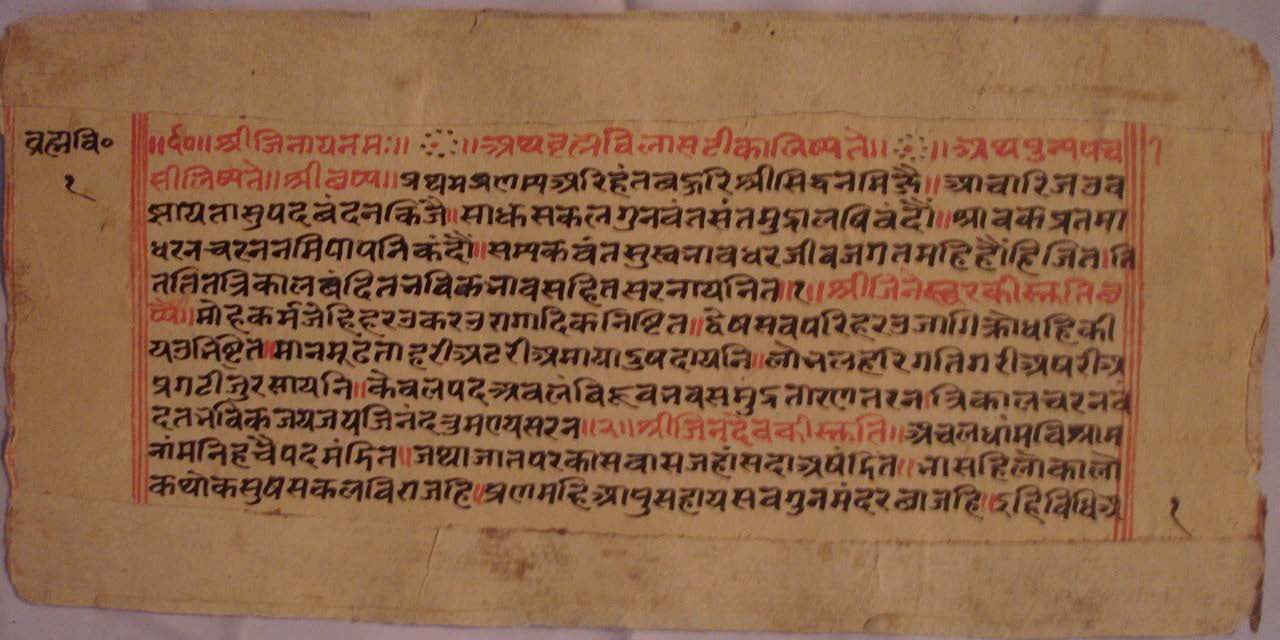 ब्रह्मवि०
१
॥ई०॥श्रीजिनायनमः॥ ॥अथब्रह्मविलासटीकालिष्यते॥ ॥अथपुन्यपच
सीलिष्यते॥श्री प्रथमप्रणम्यअरिहंतबहुरिश्रीसिद्धनमिज्जै॥आचारिजउव
झायतासुपदबंदनकिजै॥साधसकलगुनवंतसंतमुद्रालषिवंदौं॥श्रावकप्रतमा
धरनचरननमिपापनिकंदौं॥सम्यकवंतसुस्वभावधरजीवजगतमहिहैंहिजित।ति
तेतितत्रिकालबंदितभविकभावसहितसरनायनित॥१॥श्रीजिनेस्वरकीस्तुति
मोहकर्मजेहिहरउकरउरागादिकनिष्टित॥द्वेषसवपरिहरउजागिक्रोधहिकी
यउनिष्टित॥मानमूढता हरीअटरीअमायादुषदायनि॥लोभलहरिगतिगरीअषरीअ
प्रगटीजुरसायनि॥केवलपदअवलंविहूवभवसमुद्रतारणतरन।त्रिकालचरनवं
दतभविकजयजयजिनंदतुमपयसरन॥२॥श्रीजिनदेवकीस्तुति॥अचलधांमविश्राम
नांमनिहचैपदमंदित॥जथाजातपरकासवासजहांसदाअषंदित॥भासहिलोकालो
कथोकसुषसकलविराजहि॥प्रणमहिआपुसहायसवगुनमंदरछाजहि॥इहिविधिअ
१